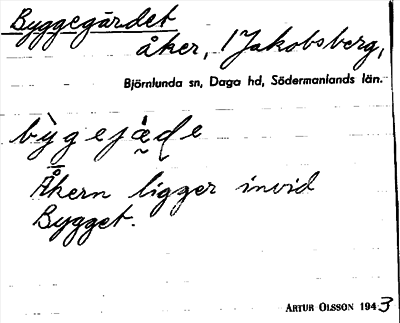 Byggegärdet
åker, 1 Jakobsberg,
Björnlunda sn, Daga hd, Södermanlands län.
Åkern ligger invid
Bygget.
ARTUR OLSSON 1943